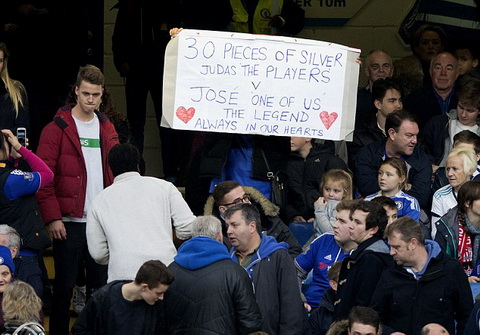 10M
30 PIECES OF SILVER
JUDAS THE PLAYERS
V
JOSÉ ONE OF US
THE LEGEND
ALWAYS IN OUR HEARTS